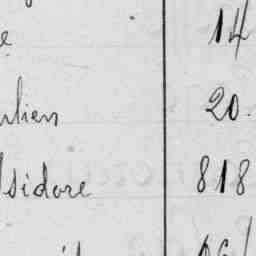 e 14
ulien 20.
Isidore 818